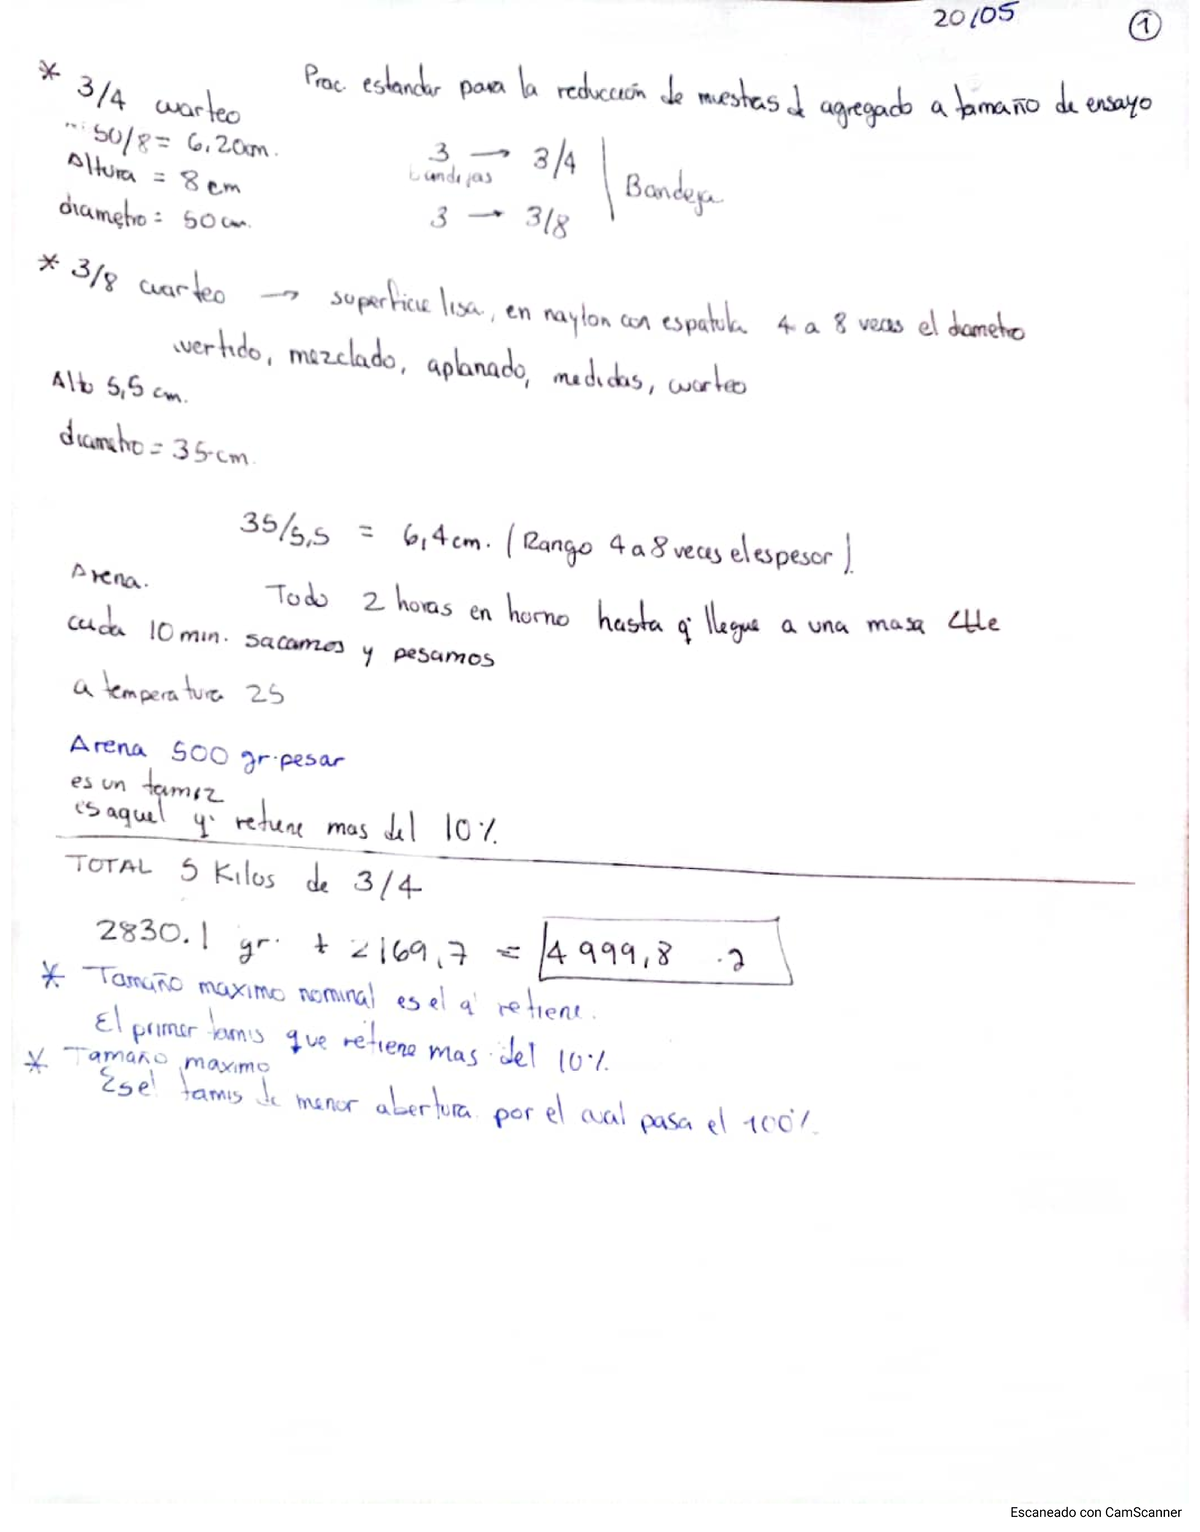 20/05 1
Proc. estandar para la reducción de muestras d agregado a tamaño de ensayo
* 3/4 cuarteo
50/8 = 6,20cm.
Altura = 8 cm
diametro = 50 cm.
3 → 3/4
bandejas
Bandeja
3 → 3/8
* 3/8 cuarteo → superficie lisa, en naylon con espatula 4 a 8 veces el diametro
vertido, mezclado, aplanado, medidas, cuarteo
Alto 5,5 cm.
diametro = 35 cm.
35/5,5 = 6,4cm. (Rango 4 a 8 veces el espesor)
Arena. Todo 2 horas en horno hasta q' llegue a una masa Ctte
cada 10 min. sacamos y pesamos
a temperatura 25
Arena 500 gr. pesar
es un tamiz
es aquel q' retiene mas del 10%
TOTAL 5 Kilos de 3/4
2830.1 gr. + 2169,7 = 4 999,8 .2
* Tamaño maximo nominal es el q' retiene.
El primer tamis que retiene mas del 10%.
* Tamaño maximo
Es el tamis de menor abertura por el cual pasa el 100%.
Escaneado con CamScanner